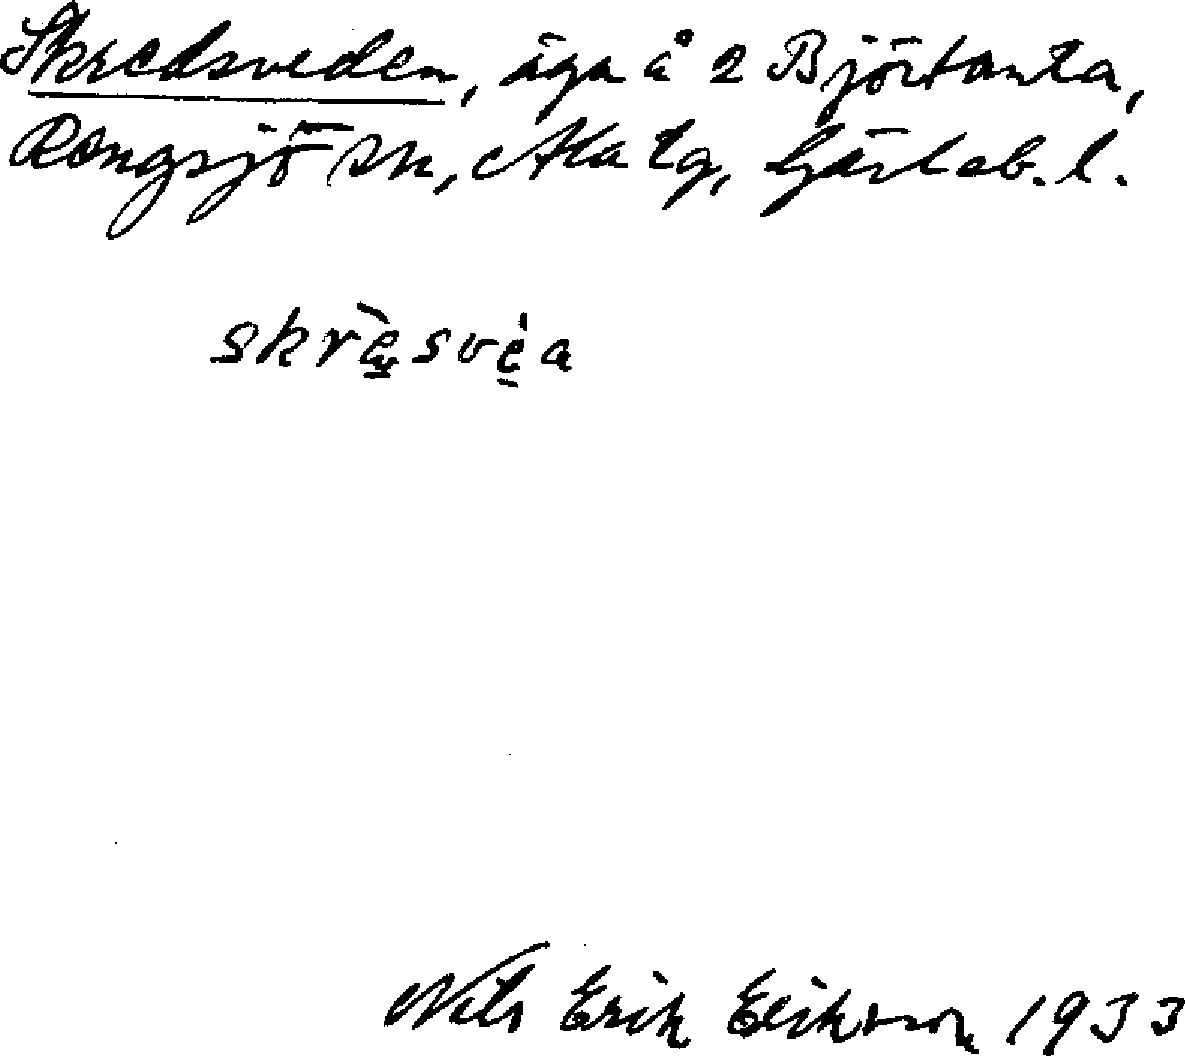 Skredsveden, äga å 2 Björtomta,
Rengsjö sn, Ala tg, Gävleb. l.
skrè̱svė̱a
Nils Erik Eriksson 1933